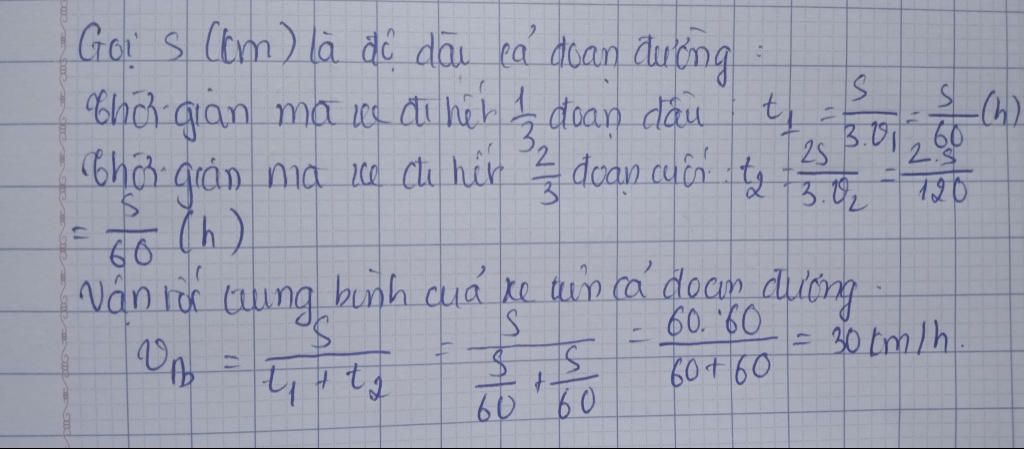 Gọi s (km) là độ dài cả đoạn đường :
Thời gian mà xe đi hết 1/3 đoạn đầu t₁ = s/(3.v₁) = s/60 (h)
Thời gian mà xe đi hết 2/3 đoạn cuối : t₂ = 2s/(3.v₂) = 2.s/120
= s/60 (h)
Vận tốc trung bình của xe trên cả đoạn đường.
v_tb = s/(t₁ + t₂) = s/(s/60 + s/60) = (60.60)/(60+60) = 30 km/h.